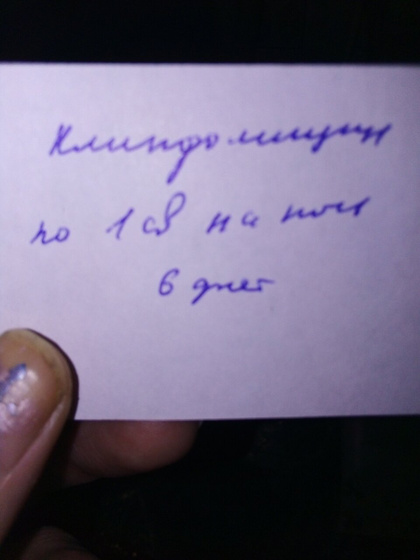 Клиндомицин
по 1 св на ночь
6 дней